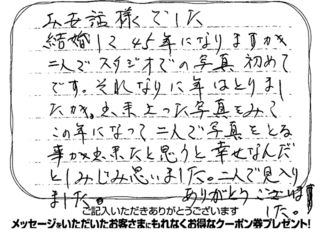 お世話様でした
結婚して45年になりますが
二人でスタジオでの写真初めて
です。それなりに年はとりまし
たが。出来上った写真をみて
この年になって二人で写真をとる
事が出来たと思うと幸せなんだ
としみじみ思いました。二人で見入り
ました。ありがとうございま
した。
ご記入いただきありがとうございます
メッセージをいただいたお客さまにもれなくお得なクーポン券プレゼント!